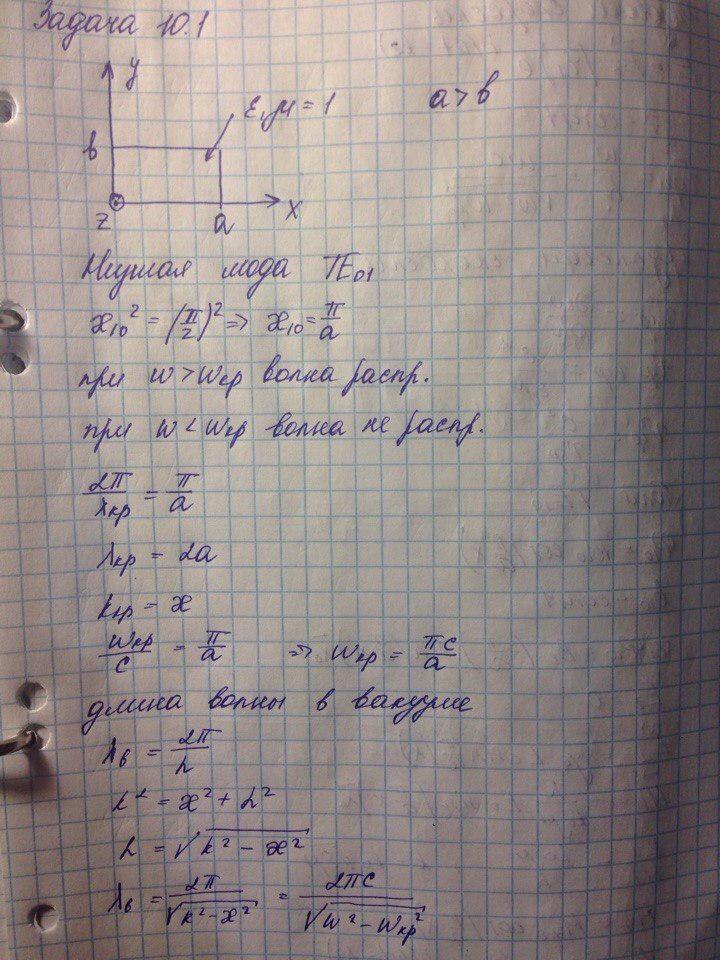 Задача 10.1
y
ε, μ = 1
a > b
b
z
a
x
Низшая мода TE₀₁
æ₁₀² = (π/2)² => æ₁₀ = π/a
при ω > ωкр волна распр.
при ω < ωкр волна не распр.
2π/λкр = π/a
λкр = 2a
kкр = æ
ωкр/c = π/a => ωкр = πc/a
длина волны в вакууме
λв = 2π/h
k² = æ² + h²
h = √(k² - æ²)
λв = 2π/√(k² - æ²) = 2πc/√(ω² - ωкр²)